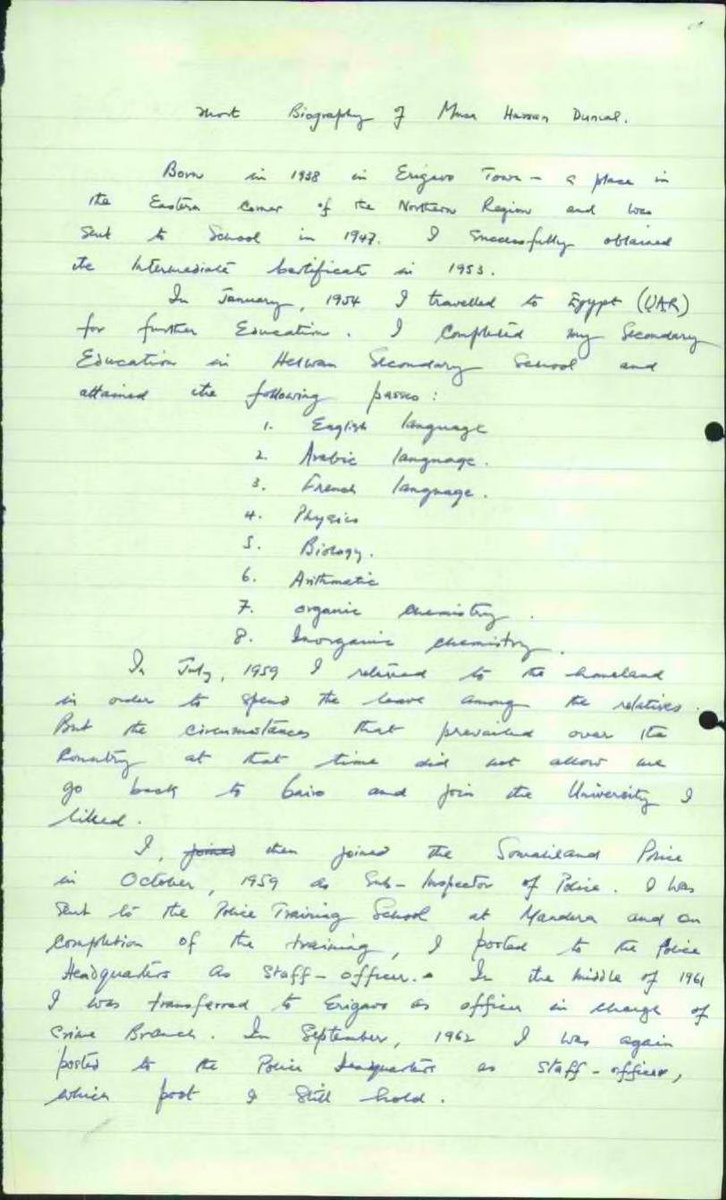 Short Biography of Musa Hassan Dunal.
Born in 1938 in Erigavo Town - a place in
the Eastern Corner of the Northern Region and was
sent to School in 1947. I successfully obtained
the Intermediate Certificate in 1953.
In January, 1954 I travelled to Egypt (UAR)
for further Education. I completed my Secondary
Education in Helwan Secondary School and
attained the following passes:
1. English language
2. Arabic language.
3. French language.
4. Physics
5. Biology.
6. Arithmatic
7. organic chemistry.
8. Inorganic chemistry.
In July, 1959 I returned to the homeland
in order to spend the leave among the relatives.
But the circumstances that prevailed over the
Country at that time did not allow me
go back to Cairo and join the University I
liked.
I, joined then joined the Somaliland Police
in October, 1959 as Sub-Inspector of Police. I was
sent to the Police Training School at Mandera and on
completion of the training, I posted to the Police
Headquarters as Staff-officer. In the middle of 1961
I was transferred to Erigavo as officer in charge of
Crime Branch. In September, 1962 I was again
posted to the Police Headquarters as Staff-officer,
which post I still hold.